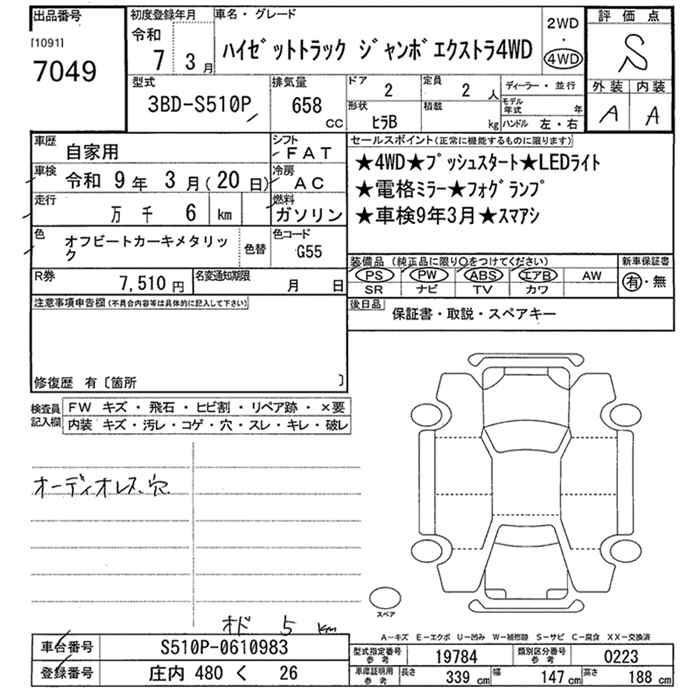 出品番号
[1091]
7049
初度登録年月
令和
7 3月
車名・グレード
ハイゼットトラック ジャンボエクストラ4WD
2WD
・
4WD
評価点
S
外装 内装
A A
型式
3BD-S510P
排気量
658
CC
ドア
2
定員
2 人
形状
ヒラB
積載
kg
ディーラー・並行
モデル年式 年
ハンドル 左・右
車歴
自家用
シフト
FAT
車検
令和 9年 3月(20日)
冷房
AC
走行
万 千 6 km
燃料
ガソリン
色
オフビートカーキメタリック
色替
色コード
G55
R券
7,510円
名変通知期限
月 日
セールスポイント(正常に機能するものに限ります)
★4WD★プッシュスタート★LEDライト
★電格ミラー★フォグランプ
★車検9年3月★スマアシ
装備品 (純正品に限り○をつけてください)
PS PW ABS エアB AW
SR ナビ TV カワ
新車保証書
有・無
後日品
保証書・取説・スペアキー
注意事項申告欄(不具合内容等は具体的に記入して下さい)
修復歴 有〔箇所 〕
検査員記入欄
FW キズ・飛石・ヒビ割・リペア跡・×要
内装 キズ・汚レ・コゲ・穴・スレ・キレ・破レ
オーディオレス、穴
オド 5 km
スペア
A-キズ E-エクボ U-凹み W-補修跡 S-サビ C-腐食 XX-交換済
車台番号
S510P-0610983
登録番号
庄内 480 く 26
型式指定番号
参考
19784
類別区分番号
参考
0223
車庫証明用
参考
長さ 339 cm
幅 147 cm
高さ 188 cm